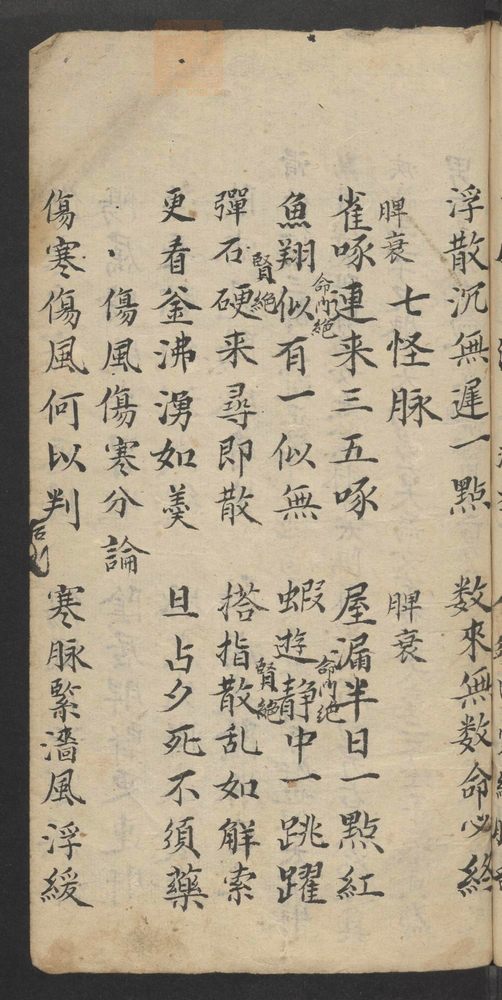 浮散沉無遲一點 数來無数命必終
七怪脉
脾衰 脾衰
雀啄連来三五啄 屋漏半日一點紅
命門絕 命門絕
魚翔似有一似無 蝦遊靜中一跳躍
腎絕 腎絕
彈石硬来尋即散 搭指散乱如解索
更看釜沸湧如羮 旦占夕死不須藥
傷風傷寒分論
傷寒傷風何以判 寒脉緊濇風浮緩